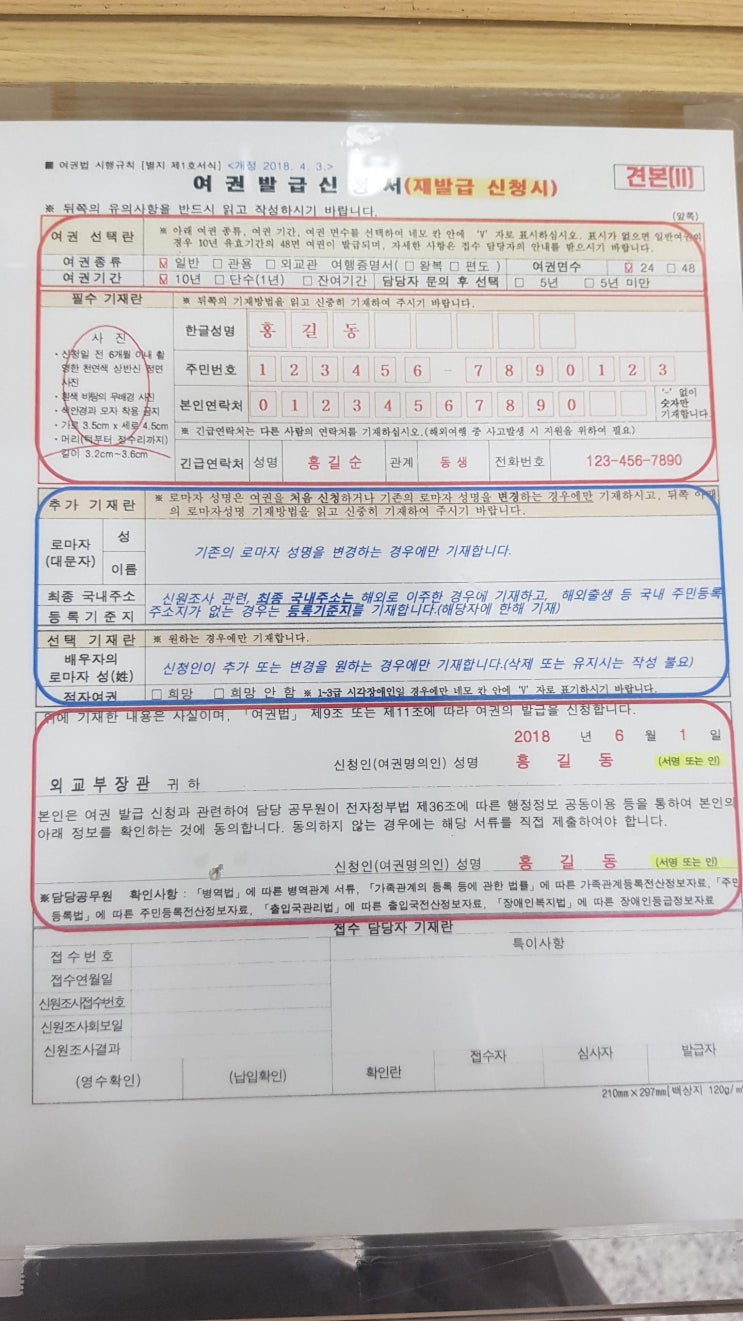 ■ 여권법 시행규칙 [별지 제1호서식] <개정 2018. 4. 3.>
견본(II)
여 권 발 급 신 서(재발급 신청시)
※ 뒤쪽의 유의사항을 반드시 읽고 작성하시기 바랍니다. (앞쪽)
여권 선택란 ※ 아래 여권 종류, 여권 기간, 여권 면수를 선택하여 네모 칸 안에 'V' 자로 표시하십시오. 표시가 없으면 일반여권의
경우 10년 유효기간의 48면 여권이 발급되며, 자세한 사항은 접수 담당자의 안내를 받으시기 바랍니다.
여권종류 ☑ 일반 □ 관용 □ 외교관 여행증명서( □ 왕복 □ 편도 ) 여권면수 ☑ 24 □ 48
여권기간 ☑ 10년 □ 단수(1년) □ 잔여기간 담당자 문의 후 선택 □ 5년 □ 5년 미만
필수 기재란 ※ 뒤쪽의 기재방법을 읽고 신중히 기재하여 주시기 바랍니다.
사 진
• 신청일 전 6개월 이내 촬
영한 천연색 상반신 정면
사진
• 흰색 바탕의 무배경 사진
• 색안경과 모자 착용 금지
• 가로 3.5cm x 세로 4.5cm
• 머리(턱부터 정수리까지)
길이 3.2cm~3.6cm
한글성명 홍 길 동
주민번호 1 2 3 4 5 6 - 7 8 9 0 1 2 3
본인연락처 0 1 2 3 4 5 6 7 8 9 0
'-' 없이
숫자만
기재합니다.
※ 긴급연락처는 다른 사람의 연락처를 기재하십시오.(해외여행 중 사고발생 시 지원을 위하여 필요)
긴급연락처 성명 홍길순 관계 동생 전화번호 123-456-7890
추가 기재란 ※ 로마자 성명은 여권을 처음 신청하거나 기존의 로마자 성명을 변경하는 경우에만 기재하시고, 뒤쪽
의 로마자성명 기재방법을 읽고 신중히 기재하여 주시기 바랍니다.
로마자
(대문자)
성
이름
기존의 로마자 성명을 변경하는 경우에만 기재합니다.
최종 국내주소
등록기준지
신원조사 관련, 최종 국내주소는 해외로 이주한 경우에 기재하고, 해외출생 등 국내 주민등록
주소지가 없는 경우는 등록기준지를 기재합니다.(해당자에 한해 기재)
선택 기재란 ※ 원하는 경우에만 기재합니다.
배우자의
로마자 성(姓)
신청인이 추가 또는 변경을 원하는 경우에만 기재합니다.(삭제 또는 유지시는 작성 불요)
점자여권 □ 희망 □ 희망 안 함 ※ 1-3급 시각장애인일 경우에만 네모 칸 안에 'V' 자로 표기하시기 바랍니다.
위에 기재한 내용은 사실이며, 「여권법」 제9조 또는 제11조에 따라 여권의 발급을 신청합니다.
2018 년 6 월 1 일
신청인(여권명의인) 성명 홍 길 동 (서명 또는 인)
외교부장관 귀하
본인은 여권 발급 신청과 관련하여 담당 공무원이 전자정부법 제36조에 따른 행정정보 공동이용 등을 통하여 본인의
아래 정보를 확인하는 것에 동의합니다. 동의하지 않는 경우에는 해당 서류를 직접 제출하여야 합니다.
신청인(여권명의인) 성명 홍 길 동 (서명 또는 인)
※담당공무원 확인사항 : 「병역법」에 따른 병역관계 서류, 「가족관계의 등록 등에 관한 법률」에 따른 가족관계등록전산정보자료, 「주민
등록법」에 따른 주민등록전산정보자료, 「출입국관리법」에 따른 출입국전산정보자료, 「장애인복지법」에 따른 장애인등급정보자료
접수 담당자 기재란
접수번호 특이사항
접수연월일
신원조사접수번호
신원조사회보일
신원조사결과
(영수확인) (납입확인) 확인란 접수자 심사자 발급자
210mm×297mm[백상지 120g/㎡